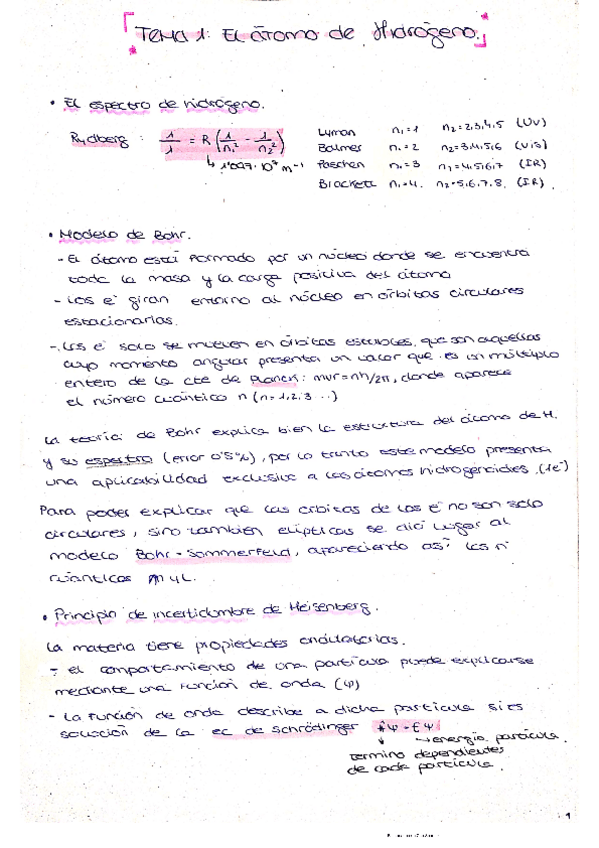 TEMA 1: El átomo de Hidrógeno.
• El espectro de hidrógeno.
Rydberg: 1/λ = R (1/n₁² - 1/n₂²)
↳ 1'097·10⁷ m⁻¹
Lyman n₁=1 n₂=2,3,4,5 (UV)
Balmer n₁=2 n₂=3,4,5,6 (vis)
Paschen n₁=3 n₂=4,5,6,7 (IR)
Brackett n₁=4. n₂=5,6,7,8. (IR).
• Modelo de Bohr.
- El átomo está formado por un núcleo donde se encuentra
toda la masa y la carga positiva del átomo
- Los e⁻ giran entorno al núcleo en órbitas circulares
estacionarias.
- Los e⁻ solo se mueven en órbitas estables, que son aquellas
cuyo momento angular presenta un valor que es un múltiplo
entero de la cte de Planck: mvr=nh/2π, donde aparece
el número cuántico n (n=1,2,3...)
La teoría de Bohr explica bien la estructura del átomo de H.
y su espectro (error 0'5%), por lo tanto este modelo presenta
una aplicabilidad exclusiva a los átomos hidrogenoides. (1e⁻)
Para poder explicar que las órbitas de los e⁻ no son solo
circulares, sino también elípticas se dió lugar al
modelo Bohr-Sommerfeld, apareciendo así los nº
cuánticos m y L.
• Principio de incertidumbre de Heisenberg.
La materia tiene propiedades ondulatorias.
- el comportamiento de una partícula puede explicarse
mediante una función de onda (Ψ)
- La función de onda describe a dicha partícula si es
solución de la ec de Schrödinger ĤΨ=EΨ
→ energía partícula.
término dependientes
de cada partícula.
1